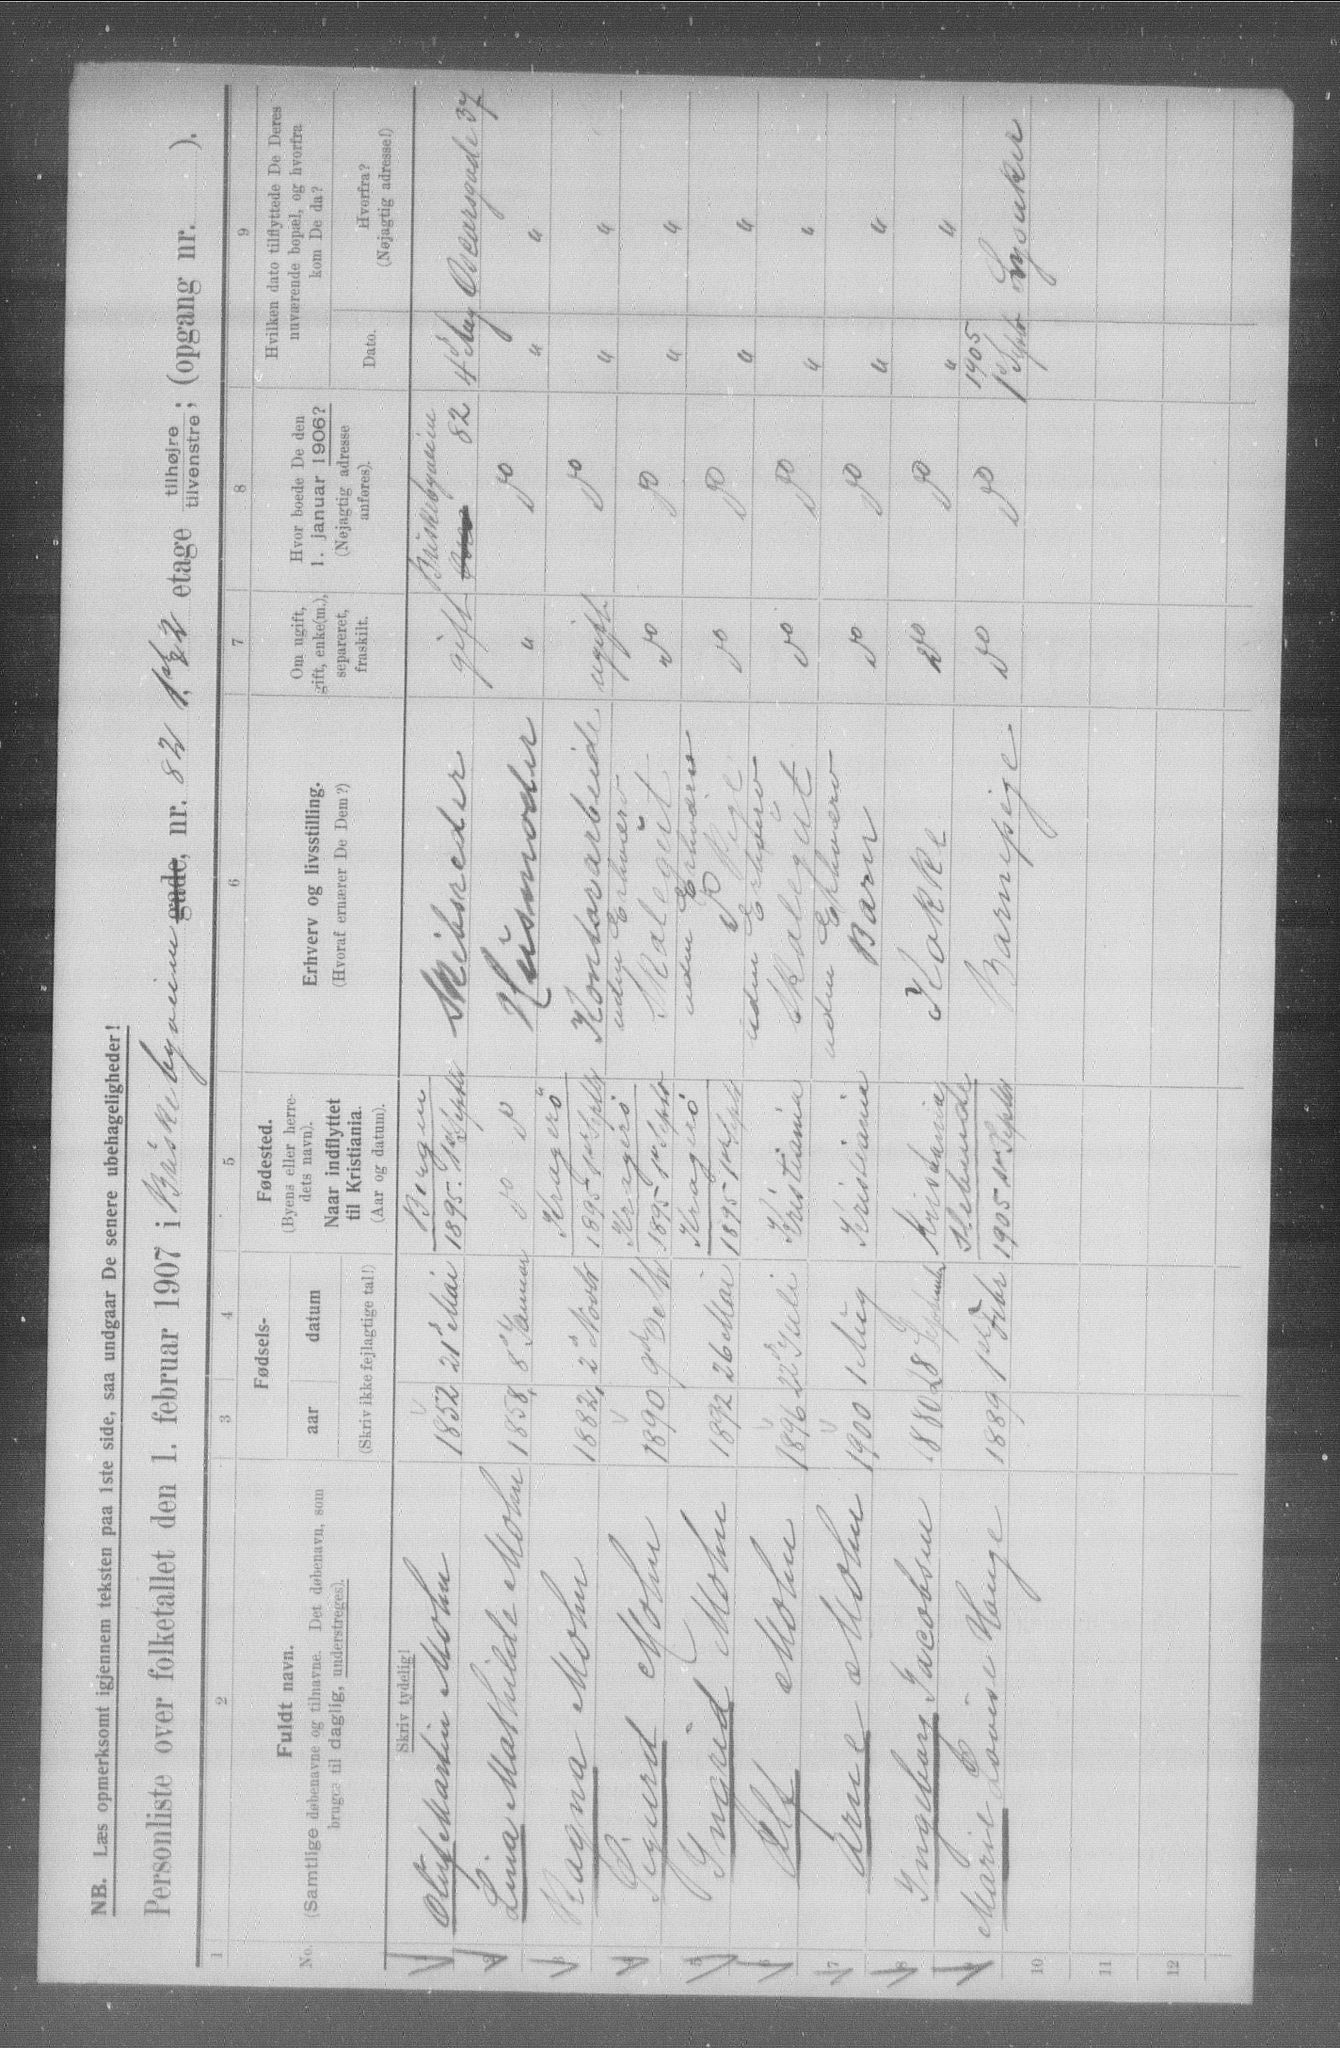 NB. Læs opmerksomt igjennem teksten paa 1ste side, saa undgaar De senere ubehageligheder!
Personliste over folketallet den 1. februar 1907 i Briskebyveien gade, nr. 82 etage tilhøjre tilvenstre; (opgang nr. ).
1 2 3 4 5 6 7 8 9
No.
Fuldt navn.
(Samtlige døbenavne og tilnavne. Det døbenavn, som
bruges til daglig, understreges).
Fødsels-
aar datum
(Skriv ikke fejlagtige tal!)
Fødested.
(Byens eller herre-
dets navn).
Naar indflyttet
til Kristiania.
(Aar og datum).
Erhverv og livsstilling.
(Hvoraf ernærer De Dem?)
Om ugift,
gift, enke(m.),
separeret,
fraskilt.
Hvor boede De den
1. januar 1906?
(Nøjagtig adresse
anføres).
Hvilken dato tilflyttede De Deres
nuværende bopæl, og hvorfra
kom De da?
Dato.
Hvorfra?
(Nøjagtig adresse!)
Skriv tydelig!
Oluf Martin Mohn 1852 21 Mai Bergen 1895. 1ste Septbr Skibsreder gift Briskebyveien 82 4de Maj Oscarsgade 37
2 Lina Mathilde Mohn 1858 8de Januar do do Husmoder " do " "
3 Ragna Mohn 1882 2 Novbr Kragerø 1895 1ste Septbr Kontorarbeide ugift do " "
4 Sigurd Mohn 1890 9de Kragerø 1895 1ste Septbr uden Erhverv Skolegut do do " "
5 Ingrid Mohn 1892 26 Mai Kragerø 1895 1ste Septbr uden Erhverv do Pige do do " "
6 Alf Mohn 1896 22 Juli Kristiania uden Erhverv Skolegut do do " "
7 Arne Mohn 1900 1 Aug Kristiania uden Erhverv Barn do do " "
8 Ingeborg Jacobsen 1880 28 September Kristiania Kokke do do " "
9 Marie Lovise Hauge 1889 1ste Febr 1905 1ste Septbr Barnepige do do 1905 1ste Septbr
10
11
12